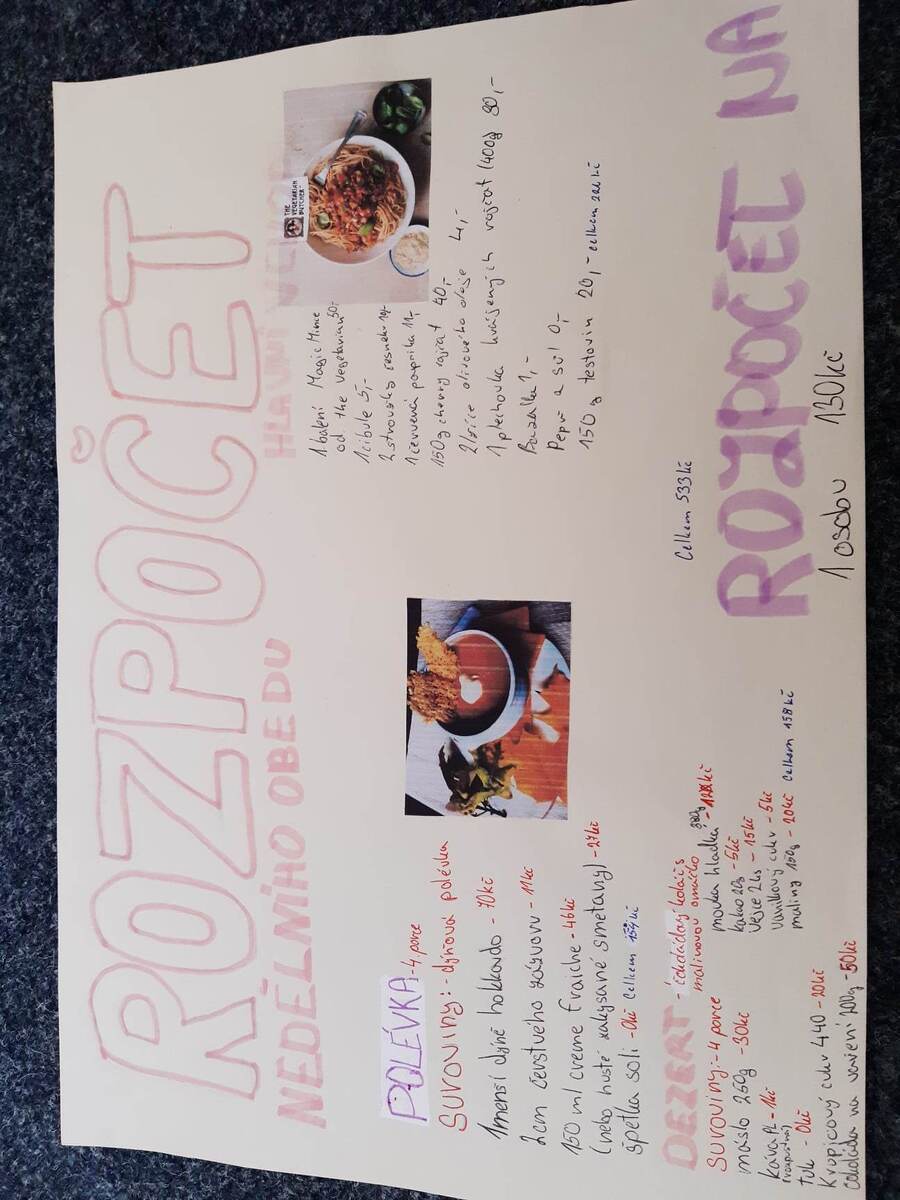 ROZPOČET
NEDĚLNÍHO OBEDU
POLÉVKA -4 porce
SUROVINY: - dýňová polévka
1 menší dýně hokkaido - 70kč
2cm čerstvého zázvoru - 11kč
150 ml creme Fraiche - 46kč
(nebo husté zakysané smetany) - 27kč
špetka soli - 0kč Celkem 154kč
HLAVNÍ
THE
VEGETARIAN
BUTCHER
1 balení Magic Mince
od the Vegetarian 50,-
1 cibule 5,-
2 stroužky česneku
1 červená paprika 11,-
150g cherry rajčat 40,-
2 lžíce olivového oleje 4,-
1 plechovka krájených rajčat (400g) 90,-
Bazalka 1,-
Pepř a sůl 0,-
150 g těstovin 20,- celkem
DEZERT - čokoládový koláč s
malinovou omáčko
SUROVINY: - 4 porce
máslo 250g - 30kč
káva PL - 1kč
tuk - 0kč
Krupicový cukr 440 - 20kč
čokoláda na vaření 200g - 50kč
mouka hladká
kakao 20g - 5kč
vejce 2ks - 15kč
vanilkový cukr - 5kč
maliny 150g - 20kč celkem 158kč
Celkem 533kč
ROZPOČET NA
1 osobu 130kč